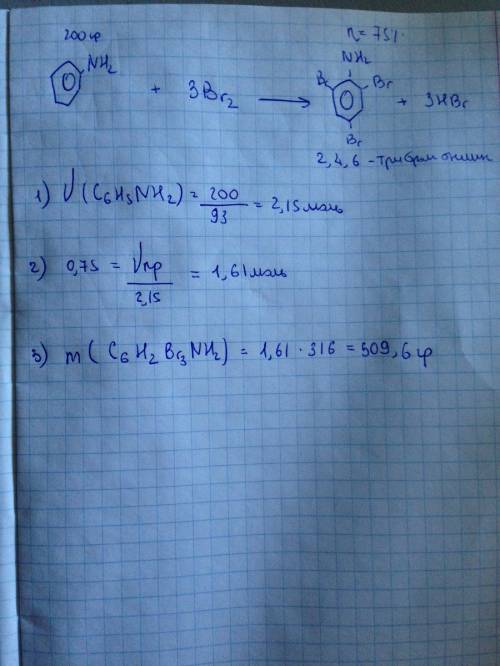 200 гр
η = 75%
NH2 + 3Br2 → NH2 Br Br Br + 3HBr
2,4,6 - триброманилин
1) ν (C6H5NH2) = 200/93 = 2,15 моль
2) 0,75 = νпр/2,15 = 1,61 моль
3) m ( C6H2Br3NH2) = 1,61 · 316 = 509,6 гр